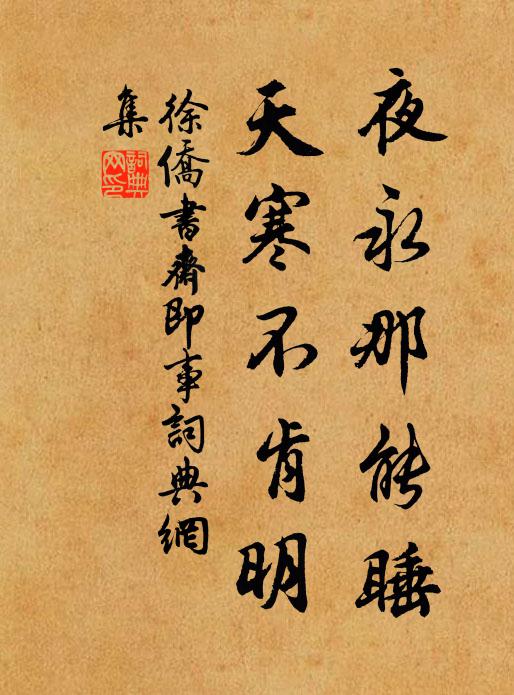 夜永那能睡
天寒不肯明
徐僑書齋即事詞典網
集
詞典
网印